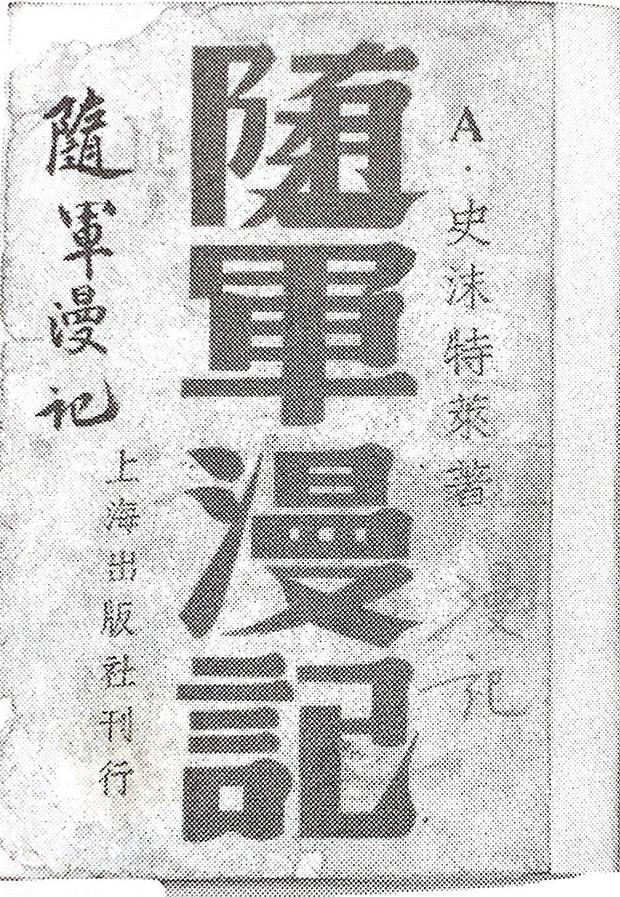 A·史沫特萊著
隨軍漫記
上海出版社刊行
隨軍漫記